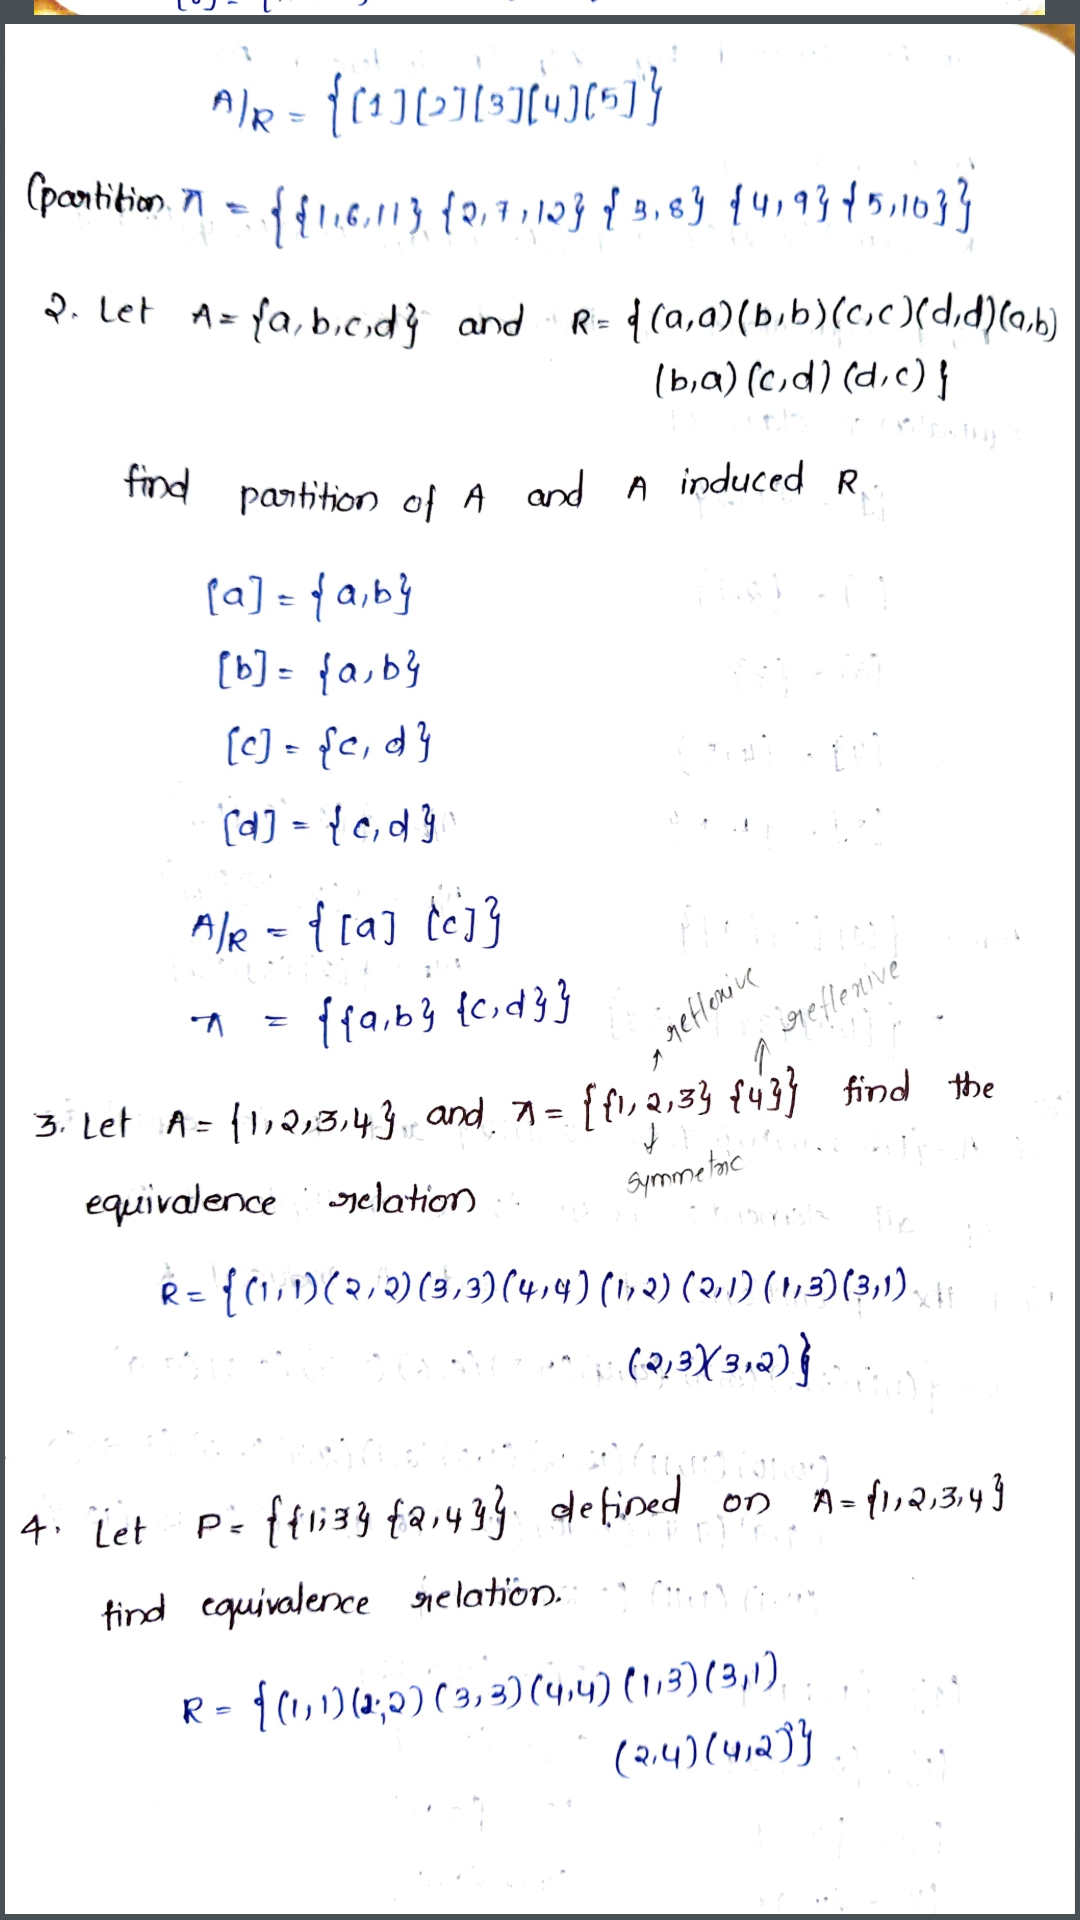 A/R = {[1][2][3][4][5]}
(partition π = {{1,6,11} {2,7,12} {3,8} {4,9} {5,10}}
2. Let A= {a,b,c,d} and R= {(a,a)(b,b)(c,c)(d,d)(a,b)
(b,a)(c,d)(d,c)}
find partition of A and A induced R.
[a] = {a,b}
[b] = {a,b}
[c] = {c,d}
[d] = {c,d}
A/R = {[a] [c]}
π = {{a,b} {c,d}}
reflexive reflexive
3. Let A= {1,2,3,4} and π = {{1,2,3} {4}} find the
symmetric
equivalence relation
R= {(1,1)(2,2)(3,3)(4,4)(1,2)(2,1)(1,3)(3,1)
(2,3)(3,2)}
4. Let P= {{1,3} {2,4}} defined on A={1,2,3,4}
find equivalence relation.
R = {(1,1)(2,2)(3,3)(4,4)(1,3)(3,1)
(2,4)(4,2)}